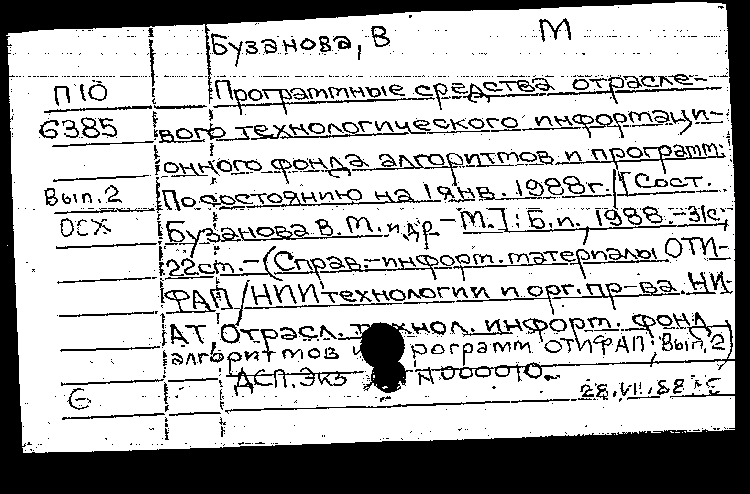 Бузанова, В М
П10 Программные средства отрасле-
G385 вого технологического информаци-
онного фонда алгоритмов и программ:
Вып.2 По состоянию на 1 янв. 1988г. / [Сост.
ОСХ Бузанова В.М. и др. - М.]: Б.и., 1988.-31с.;
22см.-(Справ.-информ.материалы ОТИ-
ФАП / НИИ технологии и орг.пр-ва. НИ-
АТ, Отрасл. технол. информ. фонд
алгоритмов и программ ОТИФАП; Вып.2)
ДСП. Экз N 000010.
G 28.VII.88